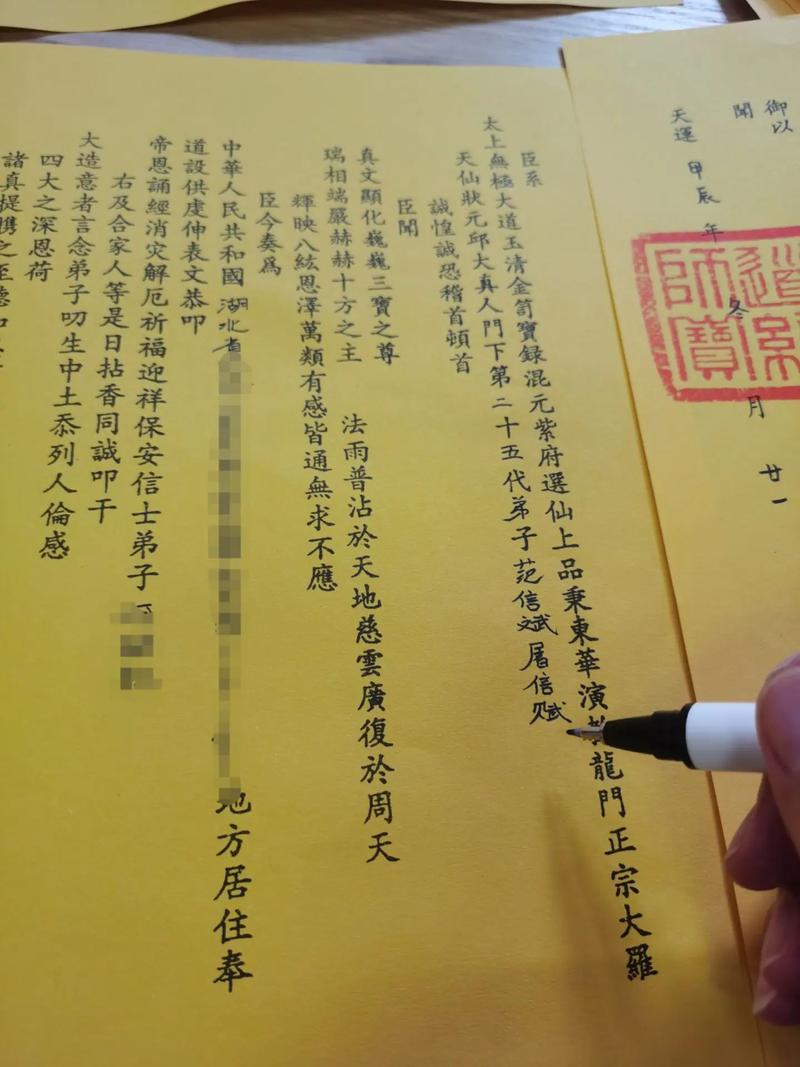 御以
聞
天運 甲辰年 冬 月 廿一
道經師寶
臣系
太上無極大道玉清金笥寶録混元紫府選仙上品秉東華演教龍門正宗大羅
天仙狀元邱大真人門下第二十五代弟子范信斌屠信赋
誠惶誠恐稽首頓首
臣聞
真文顯化巍巍三寶之尊
瑞相端嚴赫赫十方之主 法雨普沾於天地慈雲廣復於周天
輝映八紘恩澤萬類有感皆通無求不應
臣今奏爲
中華人民共和國湖北省 地方居住奉
道設供虔伸表文恭叩
帝恩誦經消灾解厄祈福迎祥保安信士弟子
右及合家人等是日拈香同誠叩干
大造意者言念弟子叨生中土忝列人倫感
四大之深恩荷
諸真提携之至德